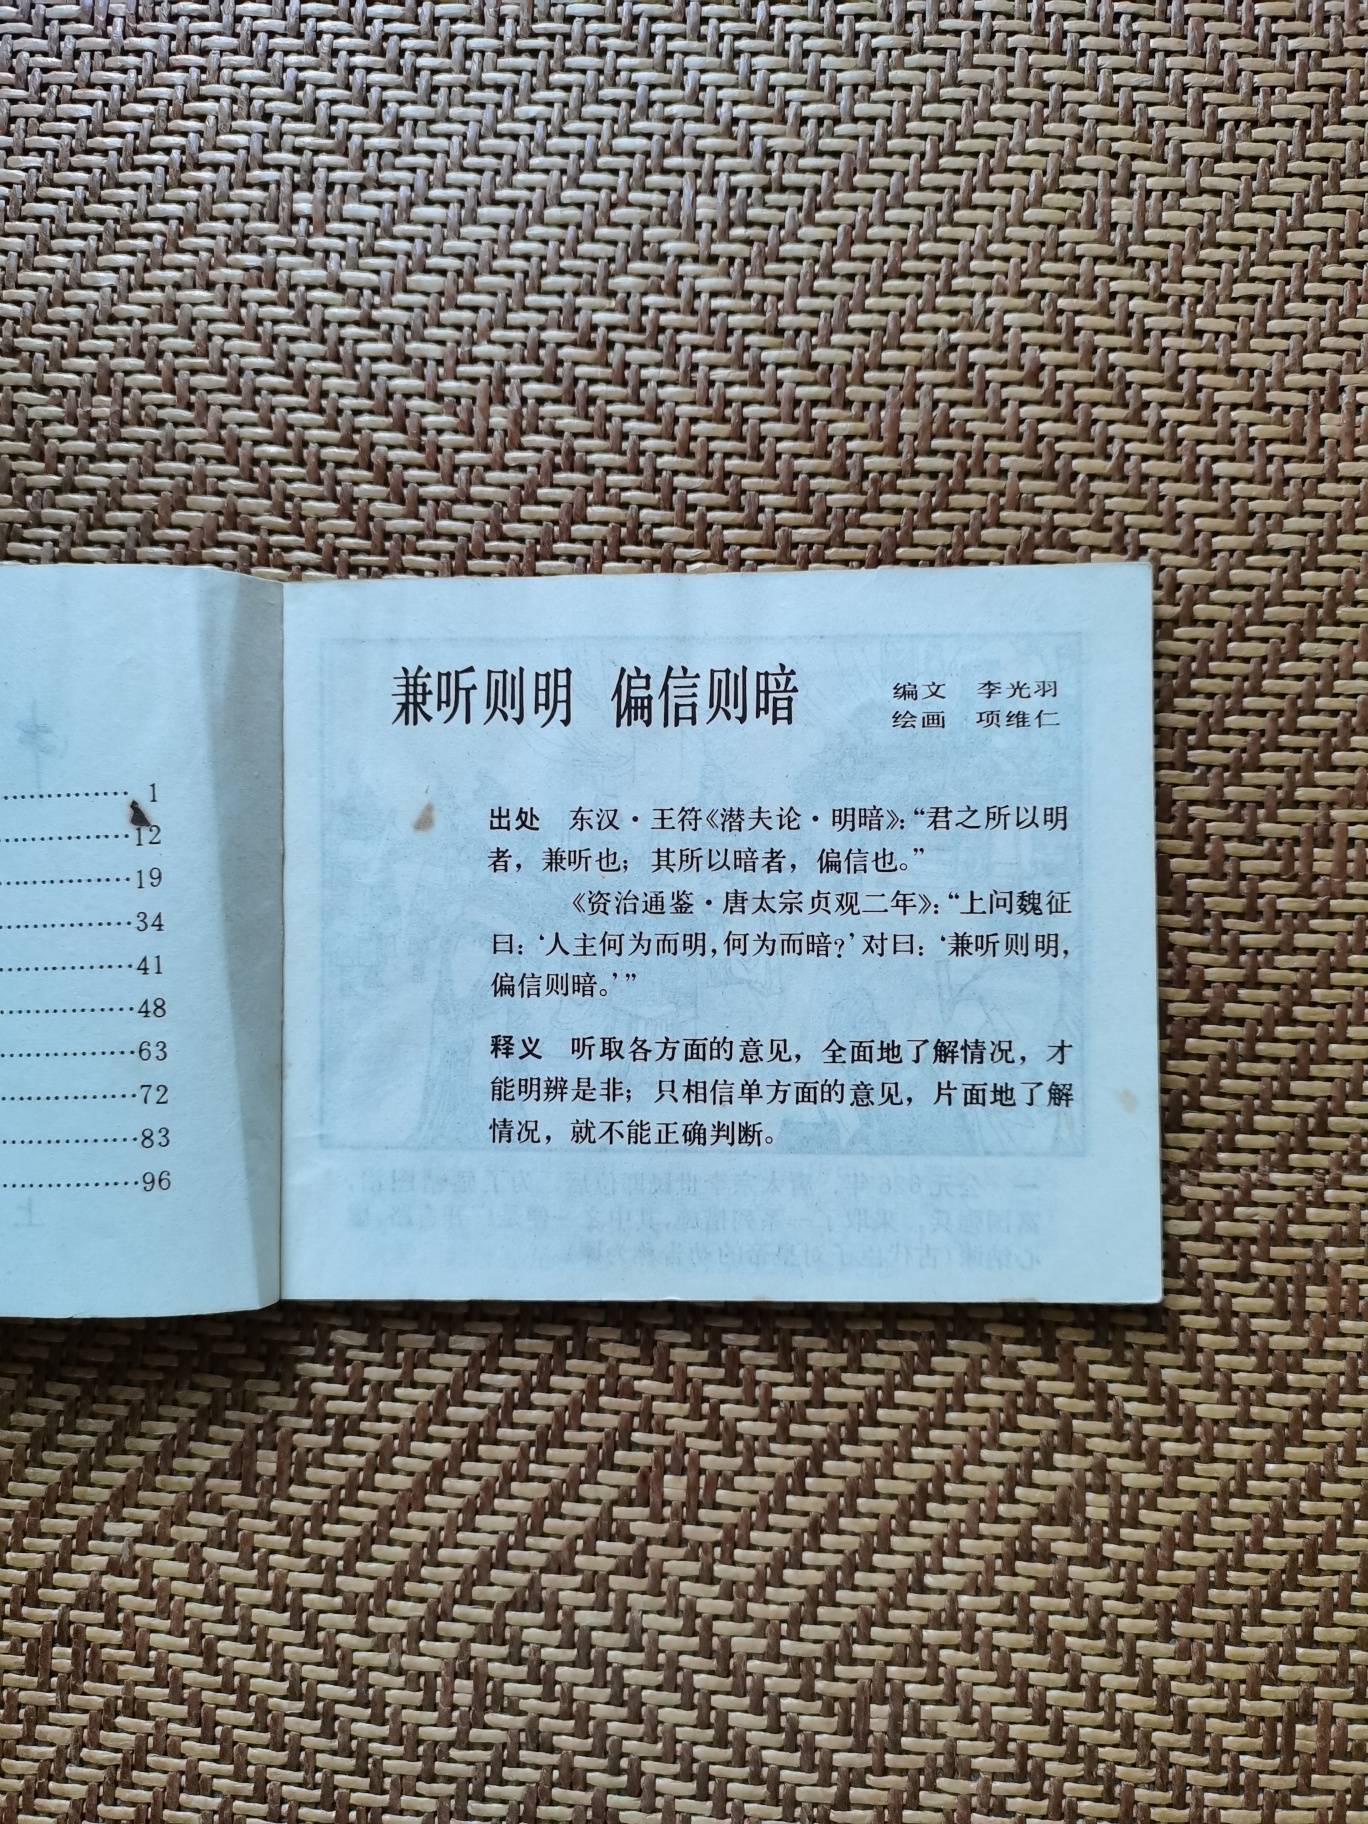 1
12
19
34
41
48
63
72
83
96
上
兼听则明 偏信则暗
编文 李光羽
绘画 项维仁
出处 东汉·王符《潜夫论·明暗》：“君之所以明
者，兼听也；其所以暗者，偏信也。”
《资治通鉴·唐太宗贞观二年》：“上问魏征
曰：‘人主何为而明，何为而暗？’对曰：‘兼听则明，
偏信则暗。’”
释义 听取各方面的意见，全面地了解情况，才
能明辨是非；只相信单方面的意见，片面地了解
情况，就不能正确判断。